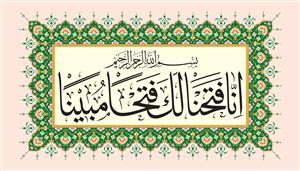 بسم الله الرحمن الرحيم
إِنَّا فَتَحْنَا لَكَ فَتْحًا مُبِينًا